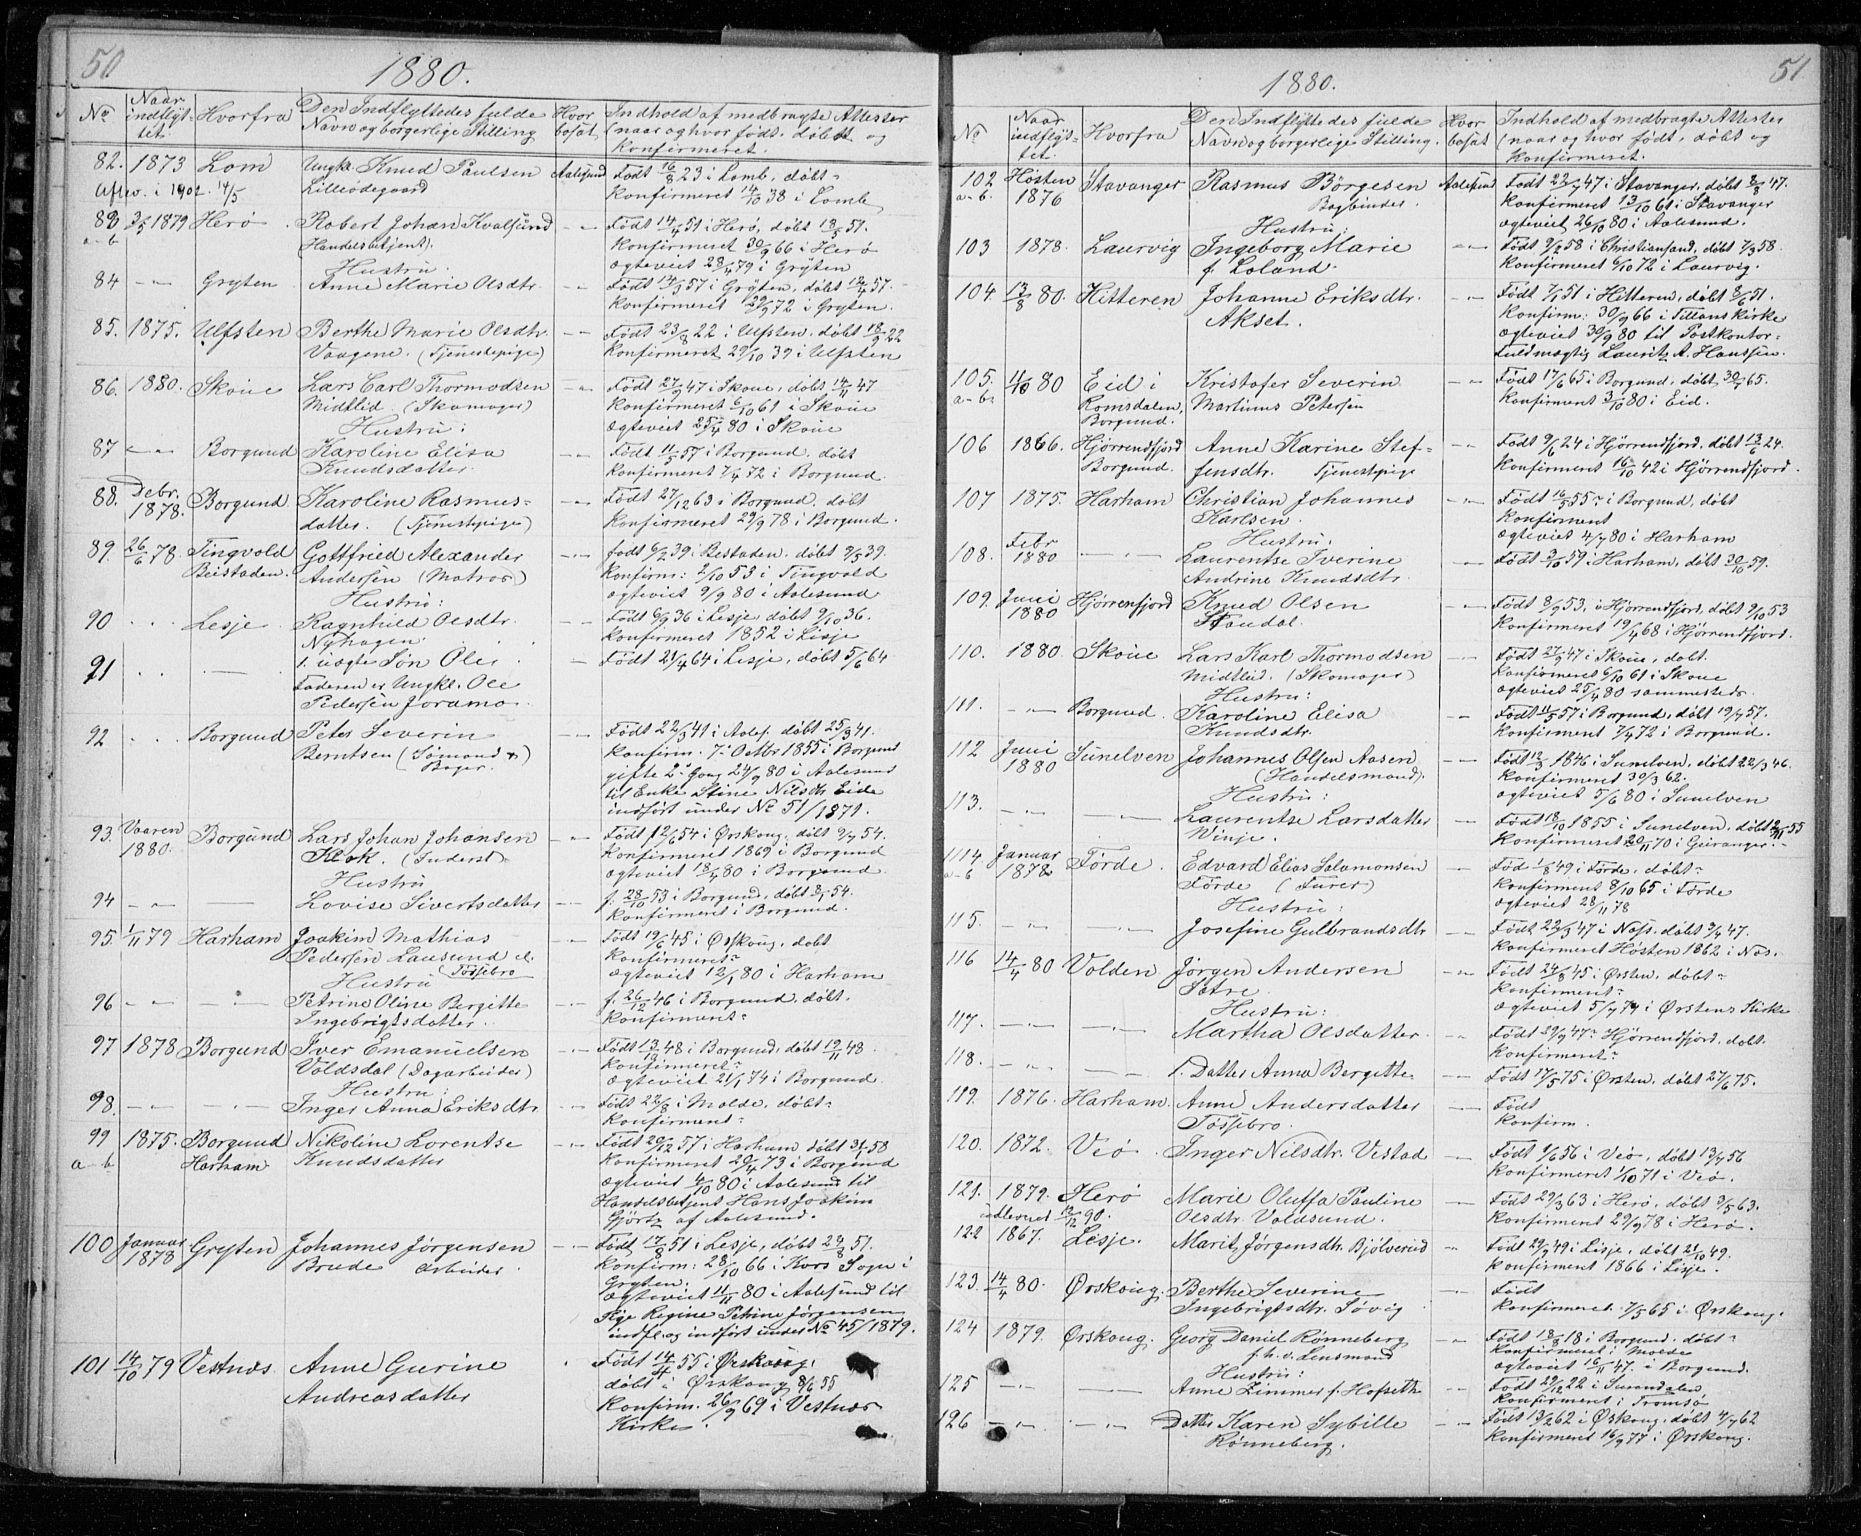 50
1880.
No
Naar indflyttet.
Hvorfra
Den Indflyttedes fulde Navn og borgerlige Stilling
Hvor bosat
Indhold af medbragte Attester (naar og hvor født, døbt og Konfirmeret.
82. 1873 Lom Ungkl. Knud Paulsen Aalesund Født 16/8 23 i Lomb, døbt-
Aflev. i 1902 14/5 Lilleødegaard Konfirmeret 14/10 38 i Lomb
83 3/5 1879 Herø Robert Johan Kvalsund -"- Født 14/4 51 i Herø, døbt 18/5 51.
a-b Handelsbetjent). Konfirmeret 30/9 66 i Herø
Hustru: ægteviet 28/4 79 i Grÿten
84 -"- Gryten Anne Marie Olsdtr. -"- Født 14/3 57 i Grÿten, døbt 12/4 57.
Konfirmeret 29/9 72 i Gryten.
85. 1875. Ulfsten Berthe Marie Olsdtr. -"- Født 23/8 22 i Ulfsten. døbt 18/9 22
Vaagene. (Tjenestepige) Konfirmeret 29/10 39 i Ulfsten
86. 1880. Skoue Lars Carl Thormodsen -"- Født 27/9 47 i Skoue, døbt 14/11 47
Midtlid (Skomager) Konfirmeret 6/10 61 i Skoue
Hustru: ægteviet 25/4 80 i Skoue
87 -"- Borgund Karoline Elisa -"- Født 11/5 57 i Borgund. døbt
Knudsdatter Konfirmert 7/4 72 i Borgund.
88. Debr. 1878. Borgund Karoline Rasmus- -"- Født 27/12 63 i Borgund, døbt
datter. (Tjenestepige) Konfirmeret 29/9 78 i Borgund.
89. 26/6 78. Tingvold Gottfried Alexander -"- født 6/2 39 i Bestaden. døbt 9/5 39.
Beistaden. Andersen (Matros) Konfirm: 2/10 53 i Tingvold
Hustru: ægteviet 9/9 80 i Aalesund
90 . . . Lesje Ragnhild Olsdtr. -"- Født 6/9 36 i Lesje, døbt 9/10 36.
Nyhagen. Konfirmeret 1852 i Lisje
91 . . . -"- 1. uægte Søn Ole. - Født 21/4 64 i Lisje, døbt 5/6 64
Faderen er Ungkl. Ole
Pedersen Joramo.
92 . . . Borgund Peter Severin Født 22/3 41 i Aalef. døbt 25/3 41.
Berntsen (Sømand & Konfirm. 7. Octbr 1855 i Borgund
Bager. gifte 2. Gang 24/9 80 i Aalesund
til Enke Stine Nilsdtr Eide
indført under No 51/1871.
93. Vaaren 1880. Borgund Lars Johan Johansen -"- Født 12/6 54 i Ørskoug, døbt 9/7 54.
Kløk. (Inderst) Konfirmeret 1869 i Borgund
Hustru ægteviet 18/4 80 i Borgund.
94 -"- -- Lovise Sivertsdatter -"- f. 28/10 53 i Borgund, døbt 8/1 54.
Konfirmeret i Borgund.
95. 1/11 79 Harham Joakim Mathias -"- Født 19/6 45 i Ørskoug, døbt
Pedersen Lausund el. Konfirmeret-
Hustru Tøssebro ægteviet 12/1 80 i Harham
96 -"- -"- Petrine Oline Bergitte -"- f. 26/12 46 i Borgund. døbt.
Ingebrigtsdatter. Konfirmert-
97 1878 Borgund Iver Emanuelsen -"- Født 13/10 48 i Borgund, døbt 19/11 48.
Voldsdal (Dagarbeider) Konfirmeret-
Hustru: ægteviet 21/1 74 i Borgund.
98. -"- -"- Inger Anna Eriksdtr. -"- Født 22/8 i Molde, døbt-
Konfirmert-
99 1875. Borgund Nikoline Lorentse -"- Født 20/12 57 i Harham, døbt 31/1 58
a-b Harham Knudsdatter Konfirmeret 20/4 73 i Borgund
ægteviet 4/10 80 i Aalesund til
Handelsbetjent Hans Joakim
Gjørtz af Aalesund.
100 Januar 1878 Gryten Johannes Jørgensen -"- Født 17/8 51 i Lesje, døbt 24/8 51.
Brude Arbeider. Konfirm: 28/10 66 i Kors Sogn i
Gryten.
ægteviet 11/11 80 i Aalesund til
Pige Regine Petrine Jørgensen
indfl. og indført under No 45/1879.
101 14/10 79 Vestnæs Anne Gurine . Født 14/4 55 i Ørskoug,
Andreasdatter døbt i Ørskoug 8/6 55
Konfirm. 26/9 69 i Vestnæs
Kirke.
51
1880.
No
Naar indflyttet.
Hvorfra
Den Indflyttedes fulde Navn og borgerlige Stilling.
Hvor bosat
Indhold af medbragte Attester (naar og hvor født, døbt og Konfirmeret.
102 Høsten 1876 Stavanger Rasmus Børgesen Aalesund Født 22/7 47 i Stavanger, døbt 8/8 47.
a-b. Bogbinder. Konfirmeret 13/10 61 i Stavanger
Hustru: ægteviet 26/10 80 i Aalesund.
103 1878. Laurvig Ingeborg Marie -"- Født 9/2 58 i Christiansand, døbt 7/3 58.
f. Loland. Konfirmeret 6/10 72 i Laurvig.
104. 13/8 80. Hitteren Johanne Eriksdtr. -"- Født 7/1 51 i Hitteren, døbt 8/6 51.
Akset. Konfirm: 30/9 66 i Fillans Kirke
ægteviet 30/9 80 til Postkontor-
fuldmægtig Lauritz A. Hanssen.
105. 11/10 80 Eid i Kristofer Severin -"- Født 17/6 65 i Borgund, døbt 30/7 65.
a-b Romsdalen, Martinus Petersen Konfirmert 3/10 80 i Eid.
Borgund.
106 1866. Hjørrendfjord Anne Karine Stef- -"- Født 9/6 24 i Hjørrendfjord. døbt 13/6 24.
Borgund. fensdtr. Tjenestepige Konfirmeret 16/10 42 i Hjørrendfjord.
107 1875. Harham Christian Johannes -"- Født 16/5 55 i Borgund, døbt
Karlsen. Konfirmert
Hustru: ægteviet 4/7 80 i Harham
108. Febr 1880 -"- Laurentse Iverine -"- Født 3/10 59 i Harham, døbt 30/10 59.
Andrine Knudsdtr.
109. Juni 1880 Hjørrenfjord Knud Olsen -"- Født 8/9 53, i Hjørrendfjord, døbt 9/10 53
Standal. Konfirmeret 19/4 68 i Hjørrendfjord.
110. 1880. Skoue Lars Karl Thormodsen -"- Født 27/9 47 i Skoue, døbt.
Midtlid. (Skomager) Konfirmeret 6/10 61 i Skoue
Hustru: ægteviet 25/4 80 sammesteds
111. -"- Borgund. Karoline Elisa -"- Født 11/5 57 i Borgund, døbt 19/7 57.
Knudsdtr. Konfirmert 7/4 72 i Borgund.
112 Juni 1880 Sunelven Johannes Olsen Aasen -"- Født 12/3 1846 i Sunelven, døbt 22/3 46.
(Handelsmand). Konfirmeret 30/3 62.
Hustru: ægteviet 5/6 80 i Sunelven
113. -"- -"- Laurentse Larsdatter -"- Født 18/10 1855 i Sunelven, døbt 2/11 55
Vinje. Konfirmeret 20/11 70 i Geiranger.-
114 Januar 1878 Førde. Edvard Elias Salamonsen -"- Fød 1/8 49 i Førde, døbt-
a-b Førde (Furer) Konfirmert 8/10 65 i Førde
Hustru: ægteviet 28/11 78
115. -"- -"- Josefine Gulbrandsdtr -"- Født 22/3 47 i Næs. døbt 3/4 47.
Konfirmeret Høsten 1862 i Næs.
116 14/4 80 Volden Jørgen Andersen -"- Født 24/8 45 i Ørsten, døbt-
Sætre. Konfirmeret-
Hustru: ægteviet 5/7 74 i Ørstens Kirke
117. -"- -"- Martha Olsdatter. -"- Født 29/9 47 Hjørrendfjord. døbt.
Konfirmeret-
118. -"- -"- 1. Datter Anna Bergitte -"- Født 17/5 75 i Ørsten, døbt 27/6 75.
119. 1876. Harham Anne Andersdatter -"- Født
Tøssebro. Konfirm.
120. 1872. Veø Inger Nilsdtr. Vestad -"- Født 9/6 56 i Veø, døbt 13/7 56
Konfirmeret 1/10 71 i Veø.
121. 1879. Herø Marie Oluffa Pauline -"- Født 29/3 63 i Herø, døbt 3/5 63.
12/12 90. Olsdtr. Voldsund. Konfirmert 29/9 78 i Herø.
122 1867. Lesje. Marit Jørgensdtr. Bjølverud -"- Født 29/9 49 i Lisje, døbt 21/10 49.
Konfirmert 1866 i Lisje.
123. 14/4 80. Ørskoug. Berthe Severine -"- Født
Ingebrigtsdtr. Søvig Konfirmeret. 7/5 65 i Ørskoug.
124 1879. Ørskoug. Georg Daniel Rønneberg -"- Født 18/8 18 i Borgund. døbt-
f. h. v. Lensmand Konfirmeret i Molde
Hustru: ægteviet 16/11 47. i Borgund.
125 -"- -"- Anne Zimmer f. Hofseth -"- Født 29/12 22 i Surendalen
Konfirmeret i Tromsø
126 -"- -"- Datter Karen Sybille -"- Født 13/2 62 i Ørskoug, døbt 4/7 62
Rønneberg. Konfirmeret 16/9 77 i Ørskoug.